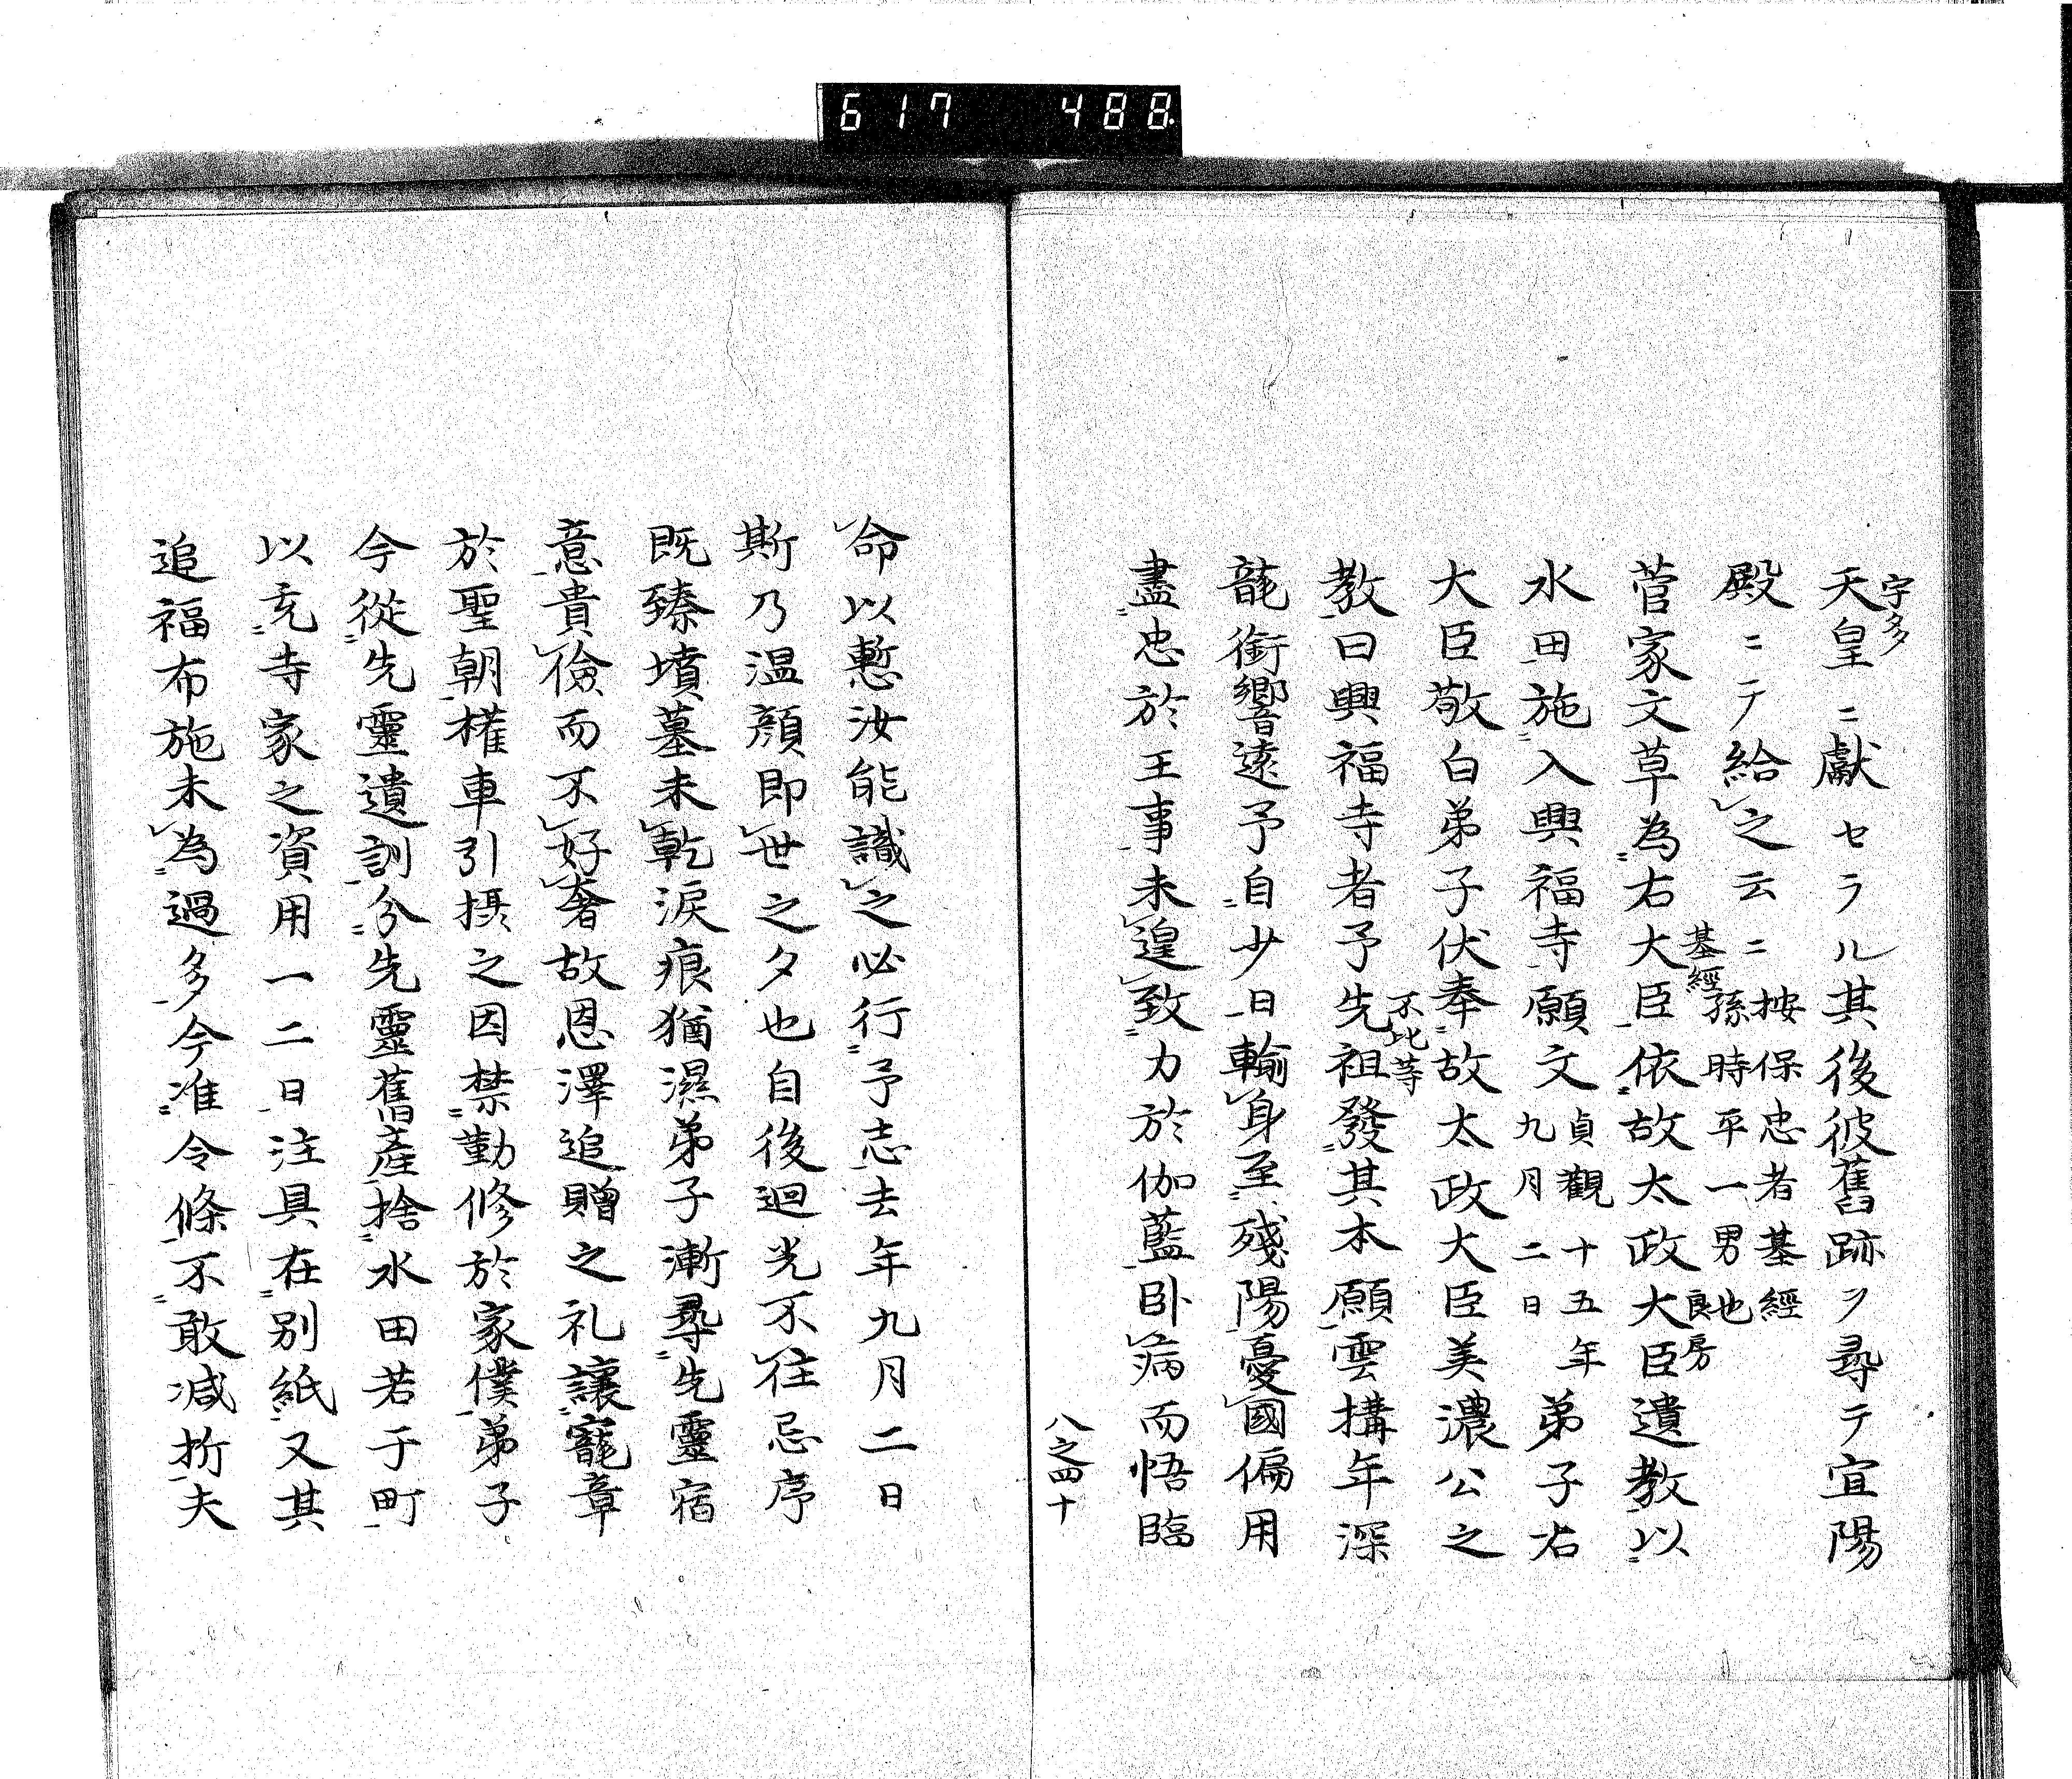 617 488
宇多
天皇ニ獻セラル其後彼舊跡ヲ尋テ宜陽
殿ニテ給之云ニ
按保忠者基經
孫時平一男也
基經 良房
菅家文草為右大臣依故太政大臣遺教以
水田施入興福寺願文
貞觀十五年
九月二日
弟子右
大臣敬白弟子伏奉故太政大臣美濃公之
不比等
教曰興福寺者予先祖發其本願雲搆年深
龍銜響遠予自少日輸身至殘陽憂國偏用
盡忠於王事未遑致力於伽藍卧病而悟臨
八之四十
命以慙汝能識之必行予志去年九月二日
斯乃温顔即世之夕也自後迴光不往忌序
既臻墳墓未乾淚痕猶濕弟子漸尋先靈宿
意貴儉而不好奢故恩澤追贈之礼讓寵章
於聖朝榷車引摂之因禁勤修於家僕弟子
今從先靈遺訓分先靈舊產捨水田若于町
以充寺家之資用一二日注具在別紙又其
追福布施未為過多今准令條不敢减折夫